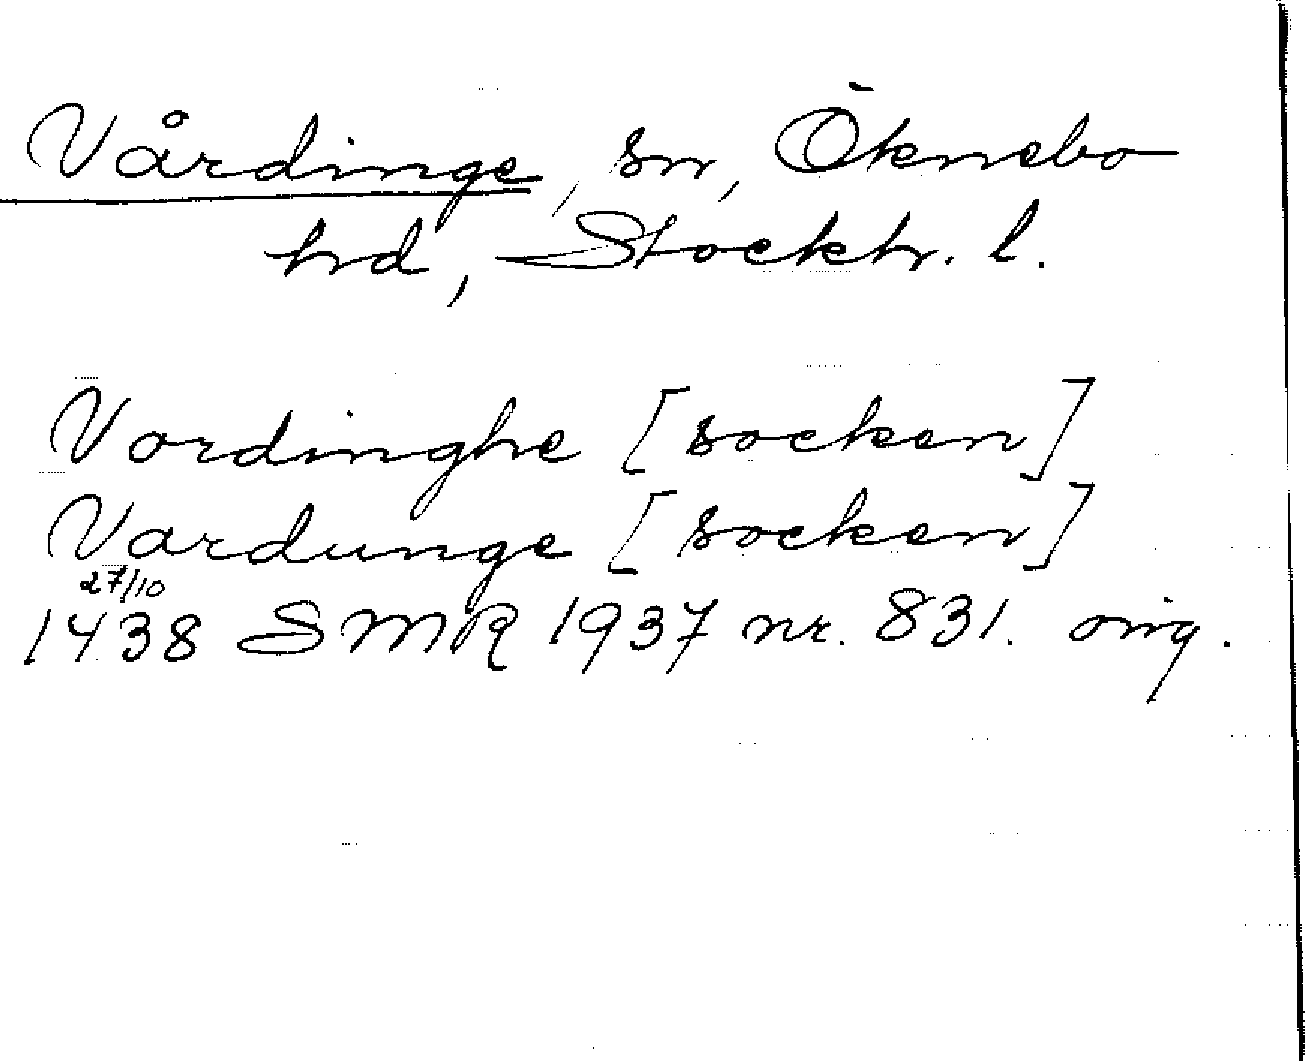 Vårdinge, sn, Öknebo
hrd, Stockh. l.
Vordinghe [socken]
Vardunge [socken]
27/10
1438 SMR 1937 nr. 831. orig.